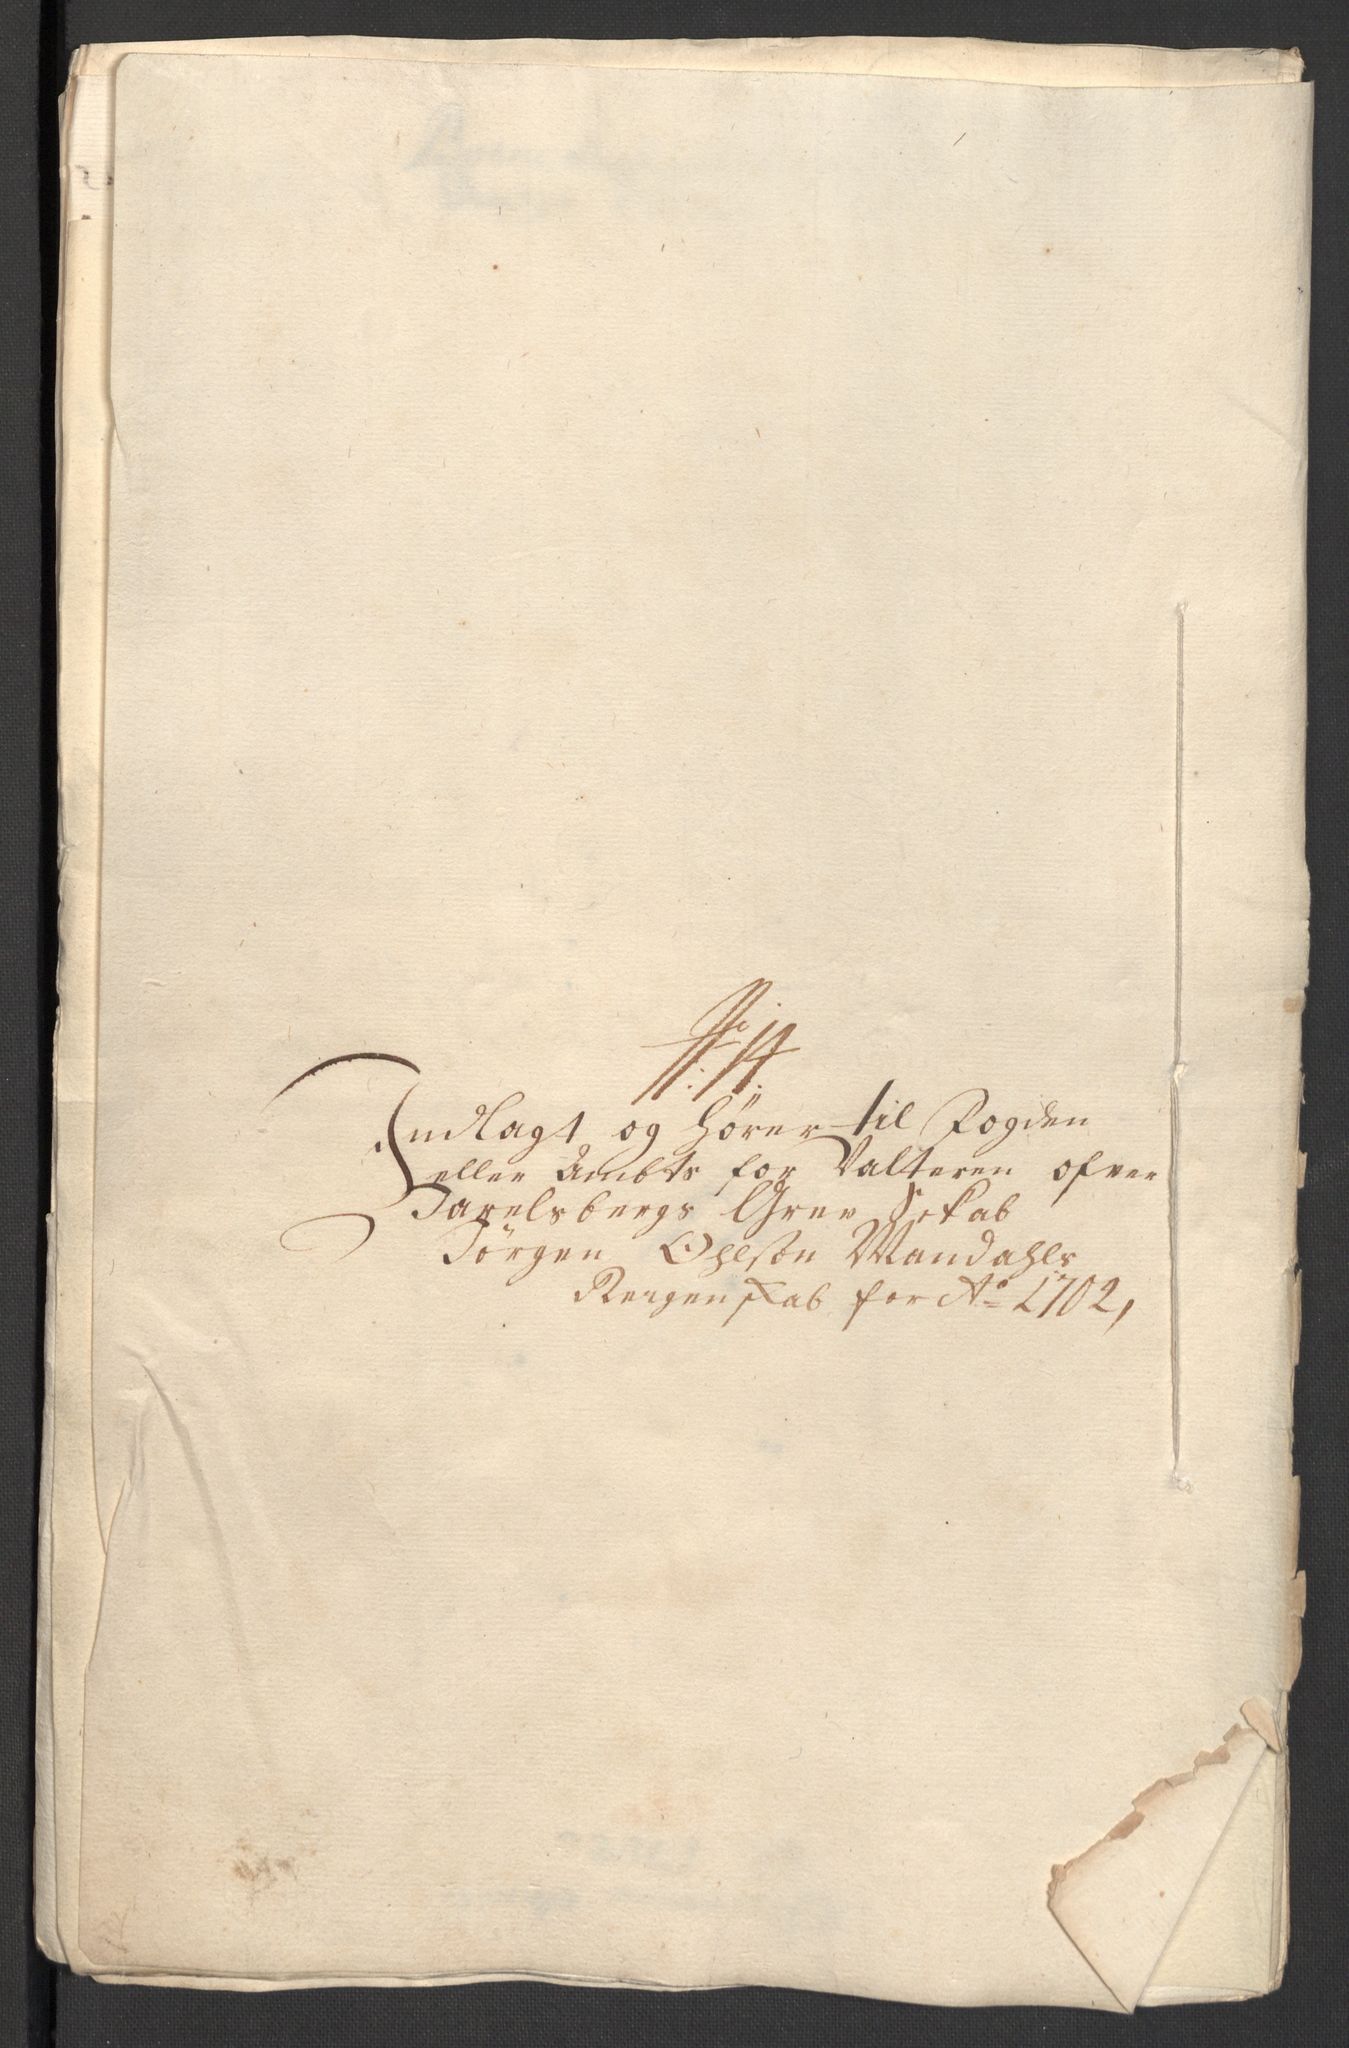 Indlagt og hører til Fogden
eller Ambts for Valteren ofver
Jarelsbergs Grev Skab
Jörgen Ohlsøn Mandahls
Rengenskab for Ao 1702,